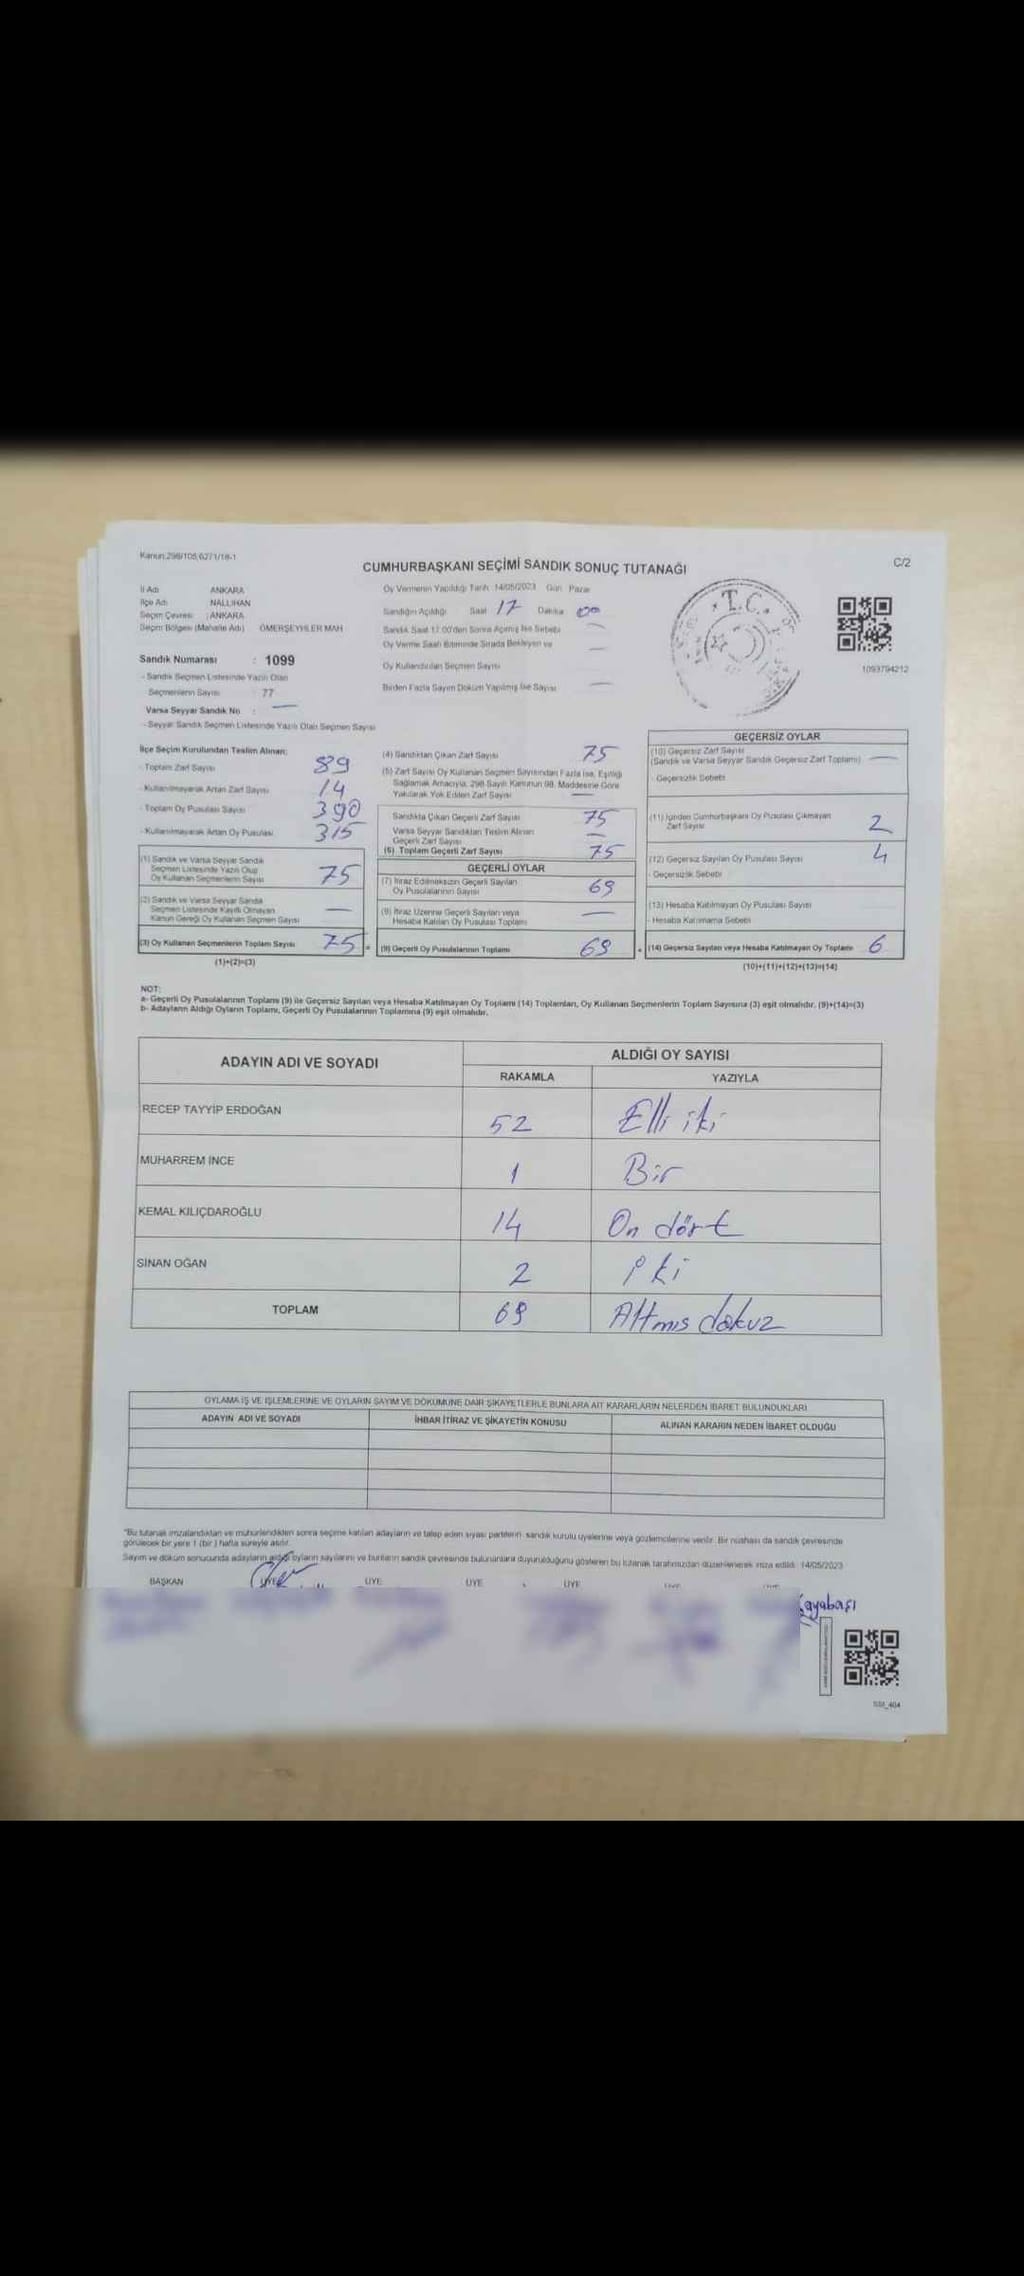 Kanun:298/105,6271/18-1
CUMHURBAŞKANI SEÇİMİ SANDIK SONUÇ TUTANAĞI
C/2
İl Adı ANKARA
İlçe Adı NALLIHAN
Seçim Çevresi : ANKARA
Seçim Bölgesi (Mahalle Adı) ÖMERŞEYHLER MAH
Sandık Numarası : 1099
- Sandık Seçmen Listesinde Yazılı Olan
Seçmenlerin Sayısı : 77
Varsa Seyyar Sandık No : —
- Seyyar Sandık Seçmen Listesinde Yazılı Olan Seçmen Sayısı
Oy Vermenin Yapıldığı Tarih: 14/05/2023 Gün: Pazar
Sandığın Açıldığı Saat 17 Dakika 00
Sandık Saat 17:00'den Sonra Açılmış İse Sebebi —
Oy Verme Saati Bitiminde Sırada Bekleyen ve —
Oy Kullandırılan Seçmen Sayısı
Birden Fazla Sayım Döküm Yapılmış İse Sayısı —
T.C.
1093794212
İlçe Seçim Kurulundan Teslim Alınan:
- Toplam Zarf Sayısı 89
- Kullanılmayarak Artan Zarf Sayısı 14
- Toplam Oy Pusulası Sayısı 390
- Kullanılmayarak Artan Oy Pusulası 315
(1) Sandık ve Varsa Seyyar Sandık
Seçmen Listesinde Yazılı Olup
Oy Kullanan Seçmenlerin Sayısı 75
(2) Sandık ve Varsa Seyyar Sandık
Seçmen Listesinde Kayıtlı Olmayan
Kanun Gereği Oy Kullanan Seçmen Sayısı —
(3) Oy Kullanan Seçmenlerin Toplam Sayısı 75
(1)+(2)=(3)
(4) Sandıktan Çıkan Zarf Sayısı 75
(5) Zarf Sayısı Oy Kullanan Seçmen Sayısından Fazla İse, Eşitliği
Sağlamak Amacıyla, 298 Sayılı Kanunun 98. Maddesine Göre
Yakılarak Yok Edilen Zarf Sayısı —
Sandıkta Çıkan Geçerli Zarf Sayısı 75
Varsa Seyyar Sandıktan Teslim Alınan
Geçerli Zarf Sayısı —
(6) Toplam Geçerli Zarf Sayısı 75
GEÇERLİ OYLAR
(7) İtiraz Edilmeksizin Geçerli Sayılan
Oy Pusulalarının Sayısı 69
(8) İtiraz Üzerine Geçerli Sayılan veya
Hesaba Katılan Oy Pusulası Toplamı —
(9) Geçerli Oy Pusulalarının Toplamı 69
GEÇERSİZ OYLAR
(10) Geçersiz Zarf Sayısı
(Sandık ve Varsa Seyyar Sandık Geçersiz Zarf Toplamı) —
- Geçersizlik Sebebi
(11) İçinden Cumhurbaşkanı Oy Pusulası Çıkmayan
Zarf Sayısı 2
(12) Geçersiz Sayılan Oy Pusulası Sayısı 4
- Geçersizlik Sebebi
(13) Hesaba Katılmayan Oy Pusulası Sayısı
- Hesaba Katılmama Sebebi
(14) Geçersiz Sayılan veya Hesaba Katılmayan Oy Toplamı 6
(10)+(11)+(12)+(13)=(14)
NOT:
a- Geçerli Oy Pusulalarının Toplamı (9) ile Geçersiz Sayılan veya Hesaba Katılmayan Oy Toplamı (14) Toplamları, Oy Kullanan Seçmenlerin Toplam Sayısına (3) eşit olmalıdır. (9)+(14)=(3)
b- Adayların Aldığı Oyların Toplamı, Geçerli Oy Pusulalarının Toplamına (9) eşit olmalıdır.
ADAYIN ADI VE SOYADI
ALDIĞI OY SAYISI
RAKAMLA YAZIYLA
RECEP TAYYİP ERDOĞAN 52 Elli iki
MUHARREM İNCE 1 Bir
KEMAL KILIÇDAROĞLU 14 On dört
SİNAN OĞAN 2 iki
TOPLAM 69 Altmıs dokuz
OYLAMA İŞ VE İŞLEMLERİNE VE OYLARIN SAYIM VE DÖKÜMÜNE DAİR ŞİKAYETLERLE BUNLARA AİT KARARLARIN NELERDEN İBARET BULUNDUKLARI
ADAYIN ADI VE SOYADI İHBAR İTİRAZ VE ŞİKAYETİN KONUSU ALINAN KARARIN NEDEN İBARET OLDUĞU
*Bu tutanak imzalandıktan ve mühürlendikten sonra seçime katılan adayların ve talep eden siyasi partilerin sandık kurulu üyelerine veya gözlemcilerine verilir. Bir nüshası da sandık çevresinde
görülecek bir yere 1 (bir) hafta süreyle asılır.
Sayım ve döküm sonucunda adayların aldığı oyların sayılarını ve bunların sandık çevresinde bulunanlara duyurulduğunu gösteren bu tutanak tarafımızdan düzenlenerek imza edildi. 14/05/2023
BAŞKAN ÜYE ÜYE ÜYE ÜYE
ayabaşı
SSI_404